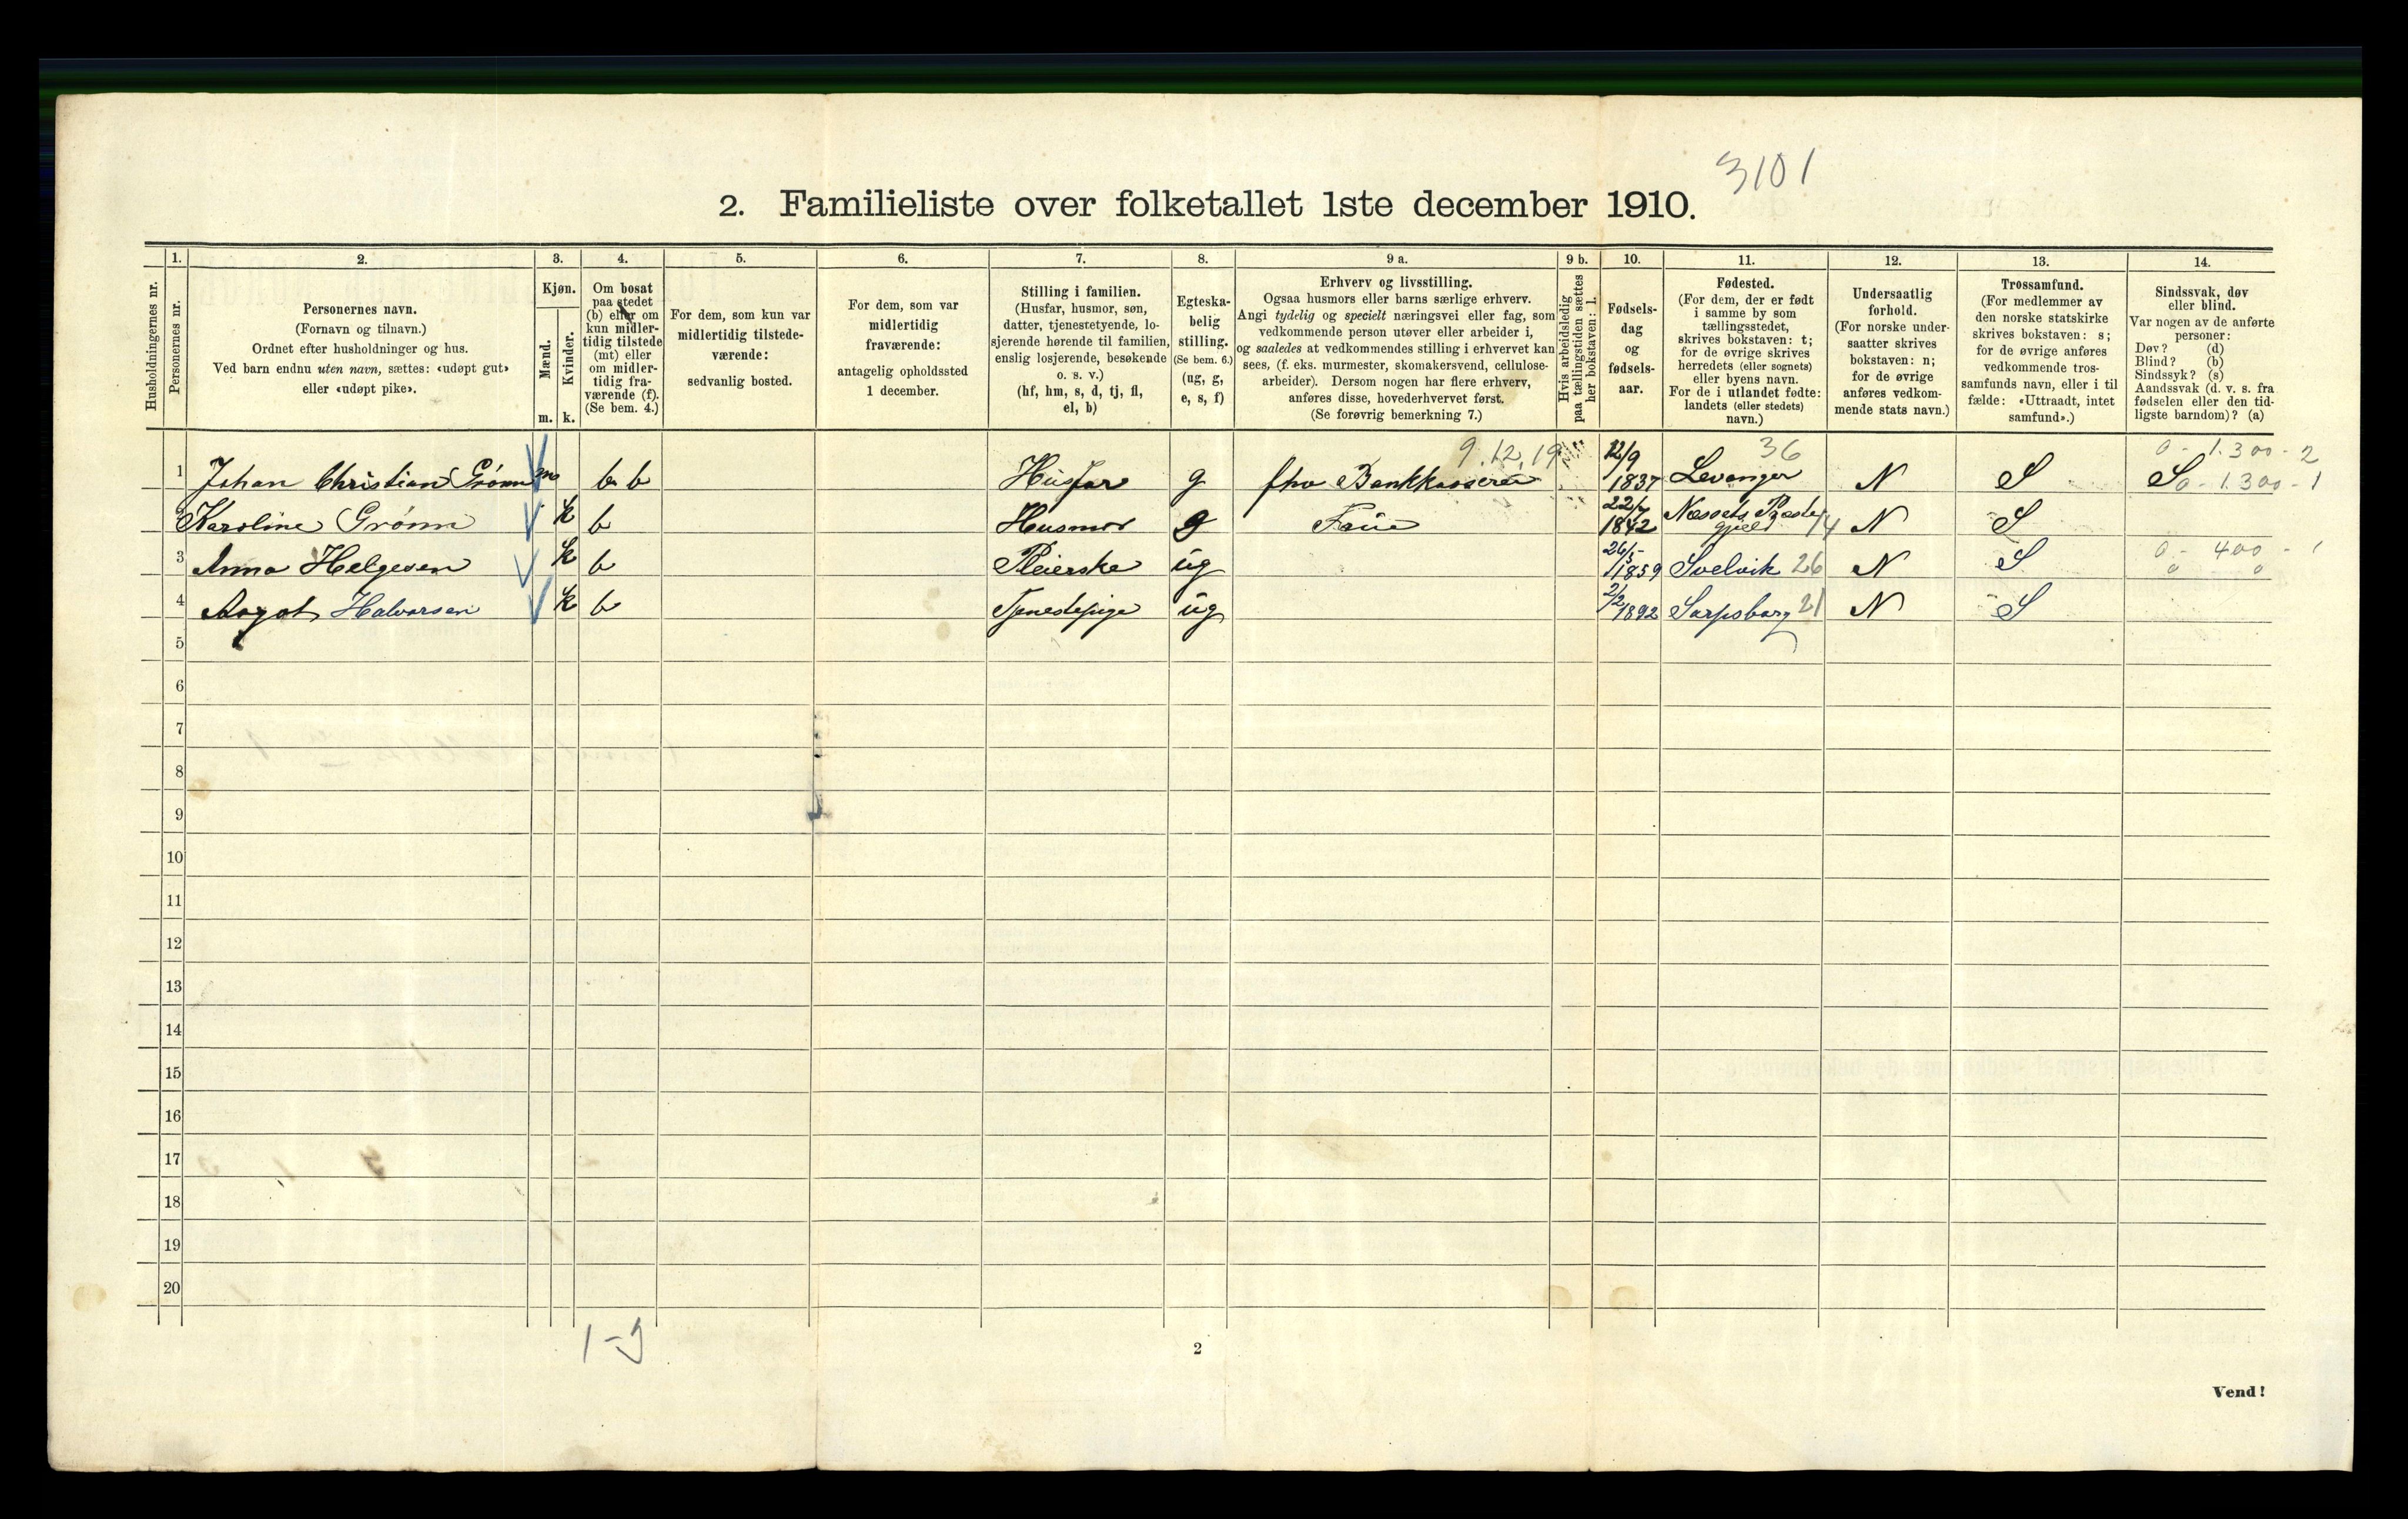 3101
2. Familieliste over folketallet 1ste december 1910.
Husholdningernes nr.
1.
Personernes nr.
2.
Personernes navn.
(Fornavn og tilnavn.)
Ordnet efter husholdninger og hus.
Ved barn endnu uten navn, sættes: «udøpt gut»
eller «udøpt pike».
3.
Kjøn.
Mænd.
Kvinder.
m. k.
4.
Om bosat
paa stedet
(b) eller om
kun midler-
tidig tilstede
(mt) eller
om midler-
tidig fra-
værende (f).
(Se bem. 4.)
5.
For dem, som kun var
midlertidig tilstede-
værende:
sedvanlig bosted.
6.
For dem, som var
midlertidig
fraværende:
antagelig opholdssted
1 december.
7.
Stilling i familien.
(Husfar, husmor, søn,
datter, tjenestetyende, lo-
sjerende hørende til familien,
enslig losjerende, besøkende
o. s. v.)
(hf, hm, s, d, tj, fl,
el, b)
8.
Egteska-
belig
stilling.
(Se bem. 6.)
(ug, g,
e, s, f)
9 a.
Erhverv og livsstilling.
Ogsaa husmors eller barns særlige erhverv.
Angi tydelig og specielt næringsvei eller fag, som
vedkommende person utøver eller arbeider i,
og saaledes at vedkommendes stilling i erhvervet kan
sees, (f. eks. murmester, skomakersvend, cellulose-
arbeider). Dersom nogen har flere erhverv,
anføres disse, hovederhvervet først.
(Se forøvrig bemerkning 7.)
9 b.
Hvis arbeidsledig
paa tællingstiden sættes
her bokstaven: l.
10.
Fødsels-
dag
og
fødsels-
aar.
11.
Fødested.
(For dem, der er født
i samme by som
tællingsstedet,
skrives bokstaven: t;
for de øvrige skrives
herredets (eller sognets)
eller byens navn.
For de i utlandet fødte:
landets (eller stedets)
navn.)
12.
Undersaatlig
forhold.
(For norske under-
saatter skrives
bokstaven: n;
for de øvrige
anføres vedkom-
mende stats navn.)
13.
Trossamfund.
(For medlemmer av
den norske statskirke
skrives bokstaven: s;
for de øvrige anføres
vedkommende tros-
samfunds navn, eller i til
fælde: «Uttraadt, intet
samfund».)
14.
Sindssvak, døv
eller blind.
Var nogen av de anførte
personer:
Døv? (d)
Blind? (b)
Sindssyk? (s)
Aandssvak (d. v. s. fra
fødselen eller den tid-
ligste barndom)? (a)
9.12.19 12/9 36 0 - 1.300 - 2
1 Johan Christian Grønn m b b Husfar g fhv Bankkasserer 1837 Levanger N S S 0 - 1.300 - 1
2 Karoline Grønn k b Husmor g Frue 22/7 1842 Næssets Præste gjeld 14 N S
3 Anna Helgesen k b Pleierske ug 26/5 1859 Svelvik 26 N S 0 - 400 - 1
0 0
4 Aagot Halvorsen k b Tjenestepige ug 2/2 1892 Sarpsborg 21 N S
5
6
7
8
9
10
11
12
13
14
15
16
17
18
19
20
1-3
2
Vend!